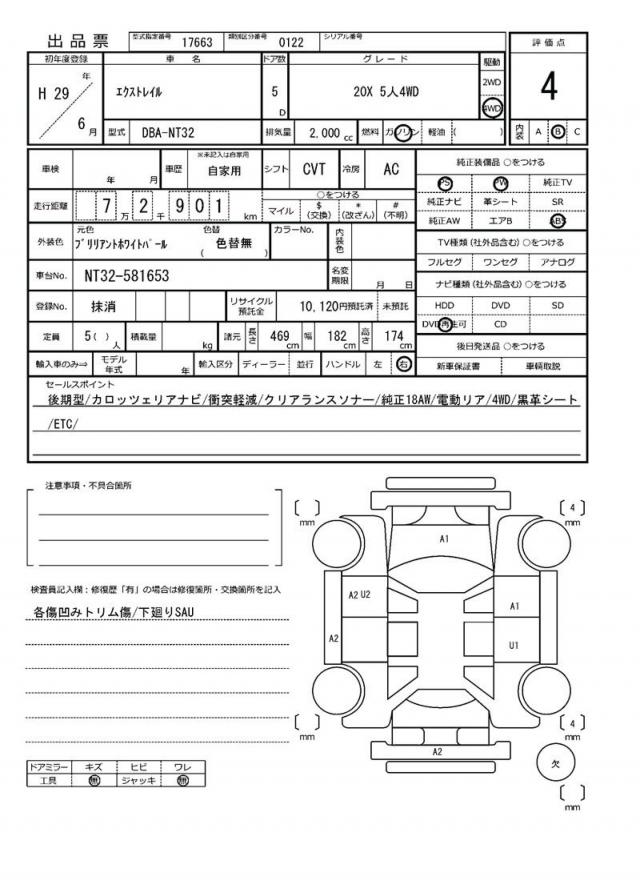 出品票 型式指定番号 17663 類別区分番号 0122 シリアル番号
初年度登録 車名 ドア数 グレード 駆動 評価点
H 29 年 6 月 エクストレイル 5 D 20X 5人4WD 2WD 4WD 4
型式 DBA-NT32 排気量 2,000 cc 燃料 ガソリン 軽油 ( ) 内装 A B C
車検 年 月 車歴 ※未記入は自家用 自家用 シフト CVT 冷房 AC 純正装備品 ○をつける
PS PW 純正TV
走行距離 7 万 2 千 9 0 1 km ○をつける マイル $ (交換) * (改ざん) # (不明) 純正ナビ 革シート SR
純正AW エアB ABS
外装色 元色 ブリリアントホワイトパール 色替 ( 色替無 ) カラーNo. 内装色 TV種類 (社外品含む) ○をつける
フルセグ ワンセグ アナログ
車台No. NT32-581653 名変期限 月 日 ナビ種類 (社外品含む) ○をつける
登録No. 抹消 リサイクル預託金 10,120円預託済 未預託 HDD DVD SD
DVD再生可 CD
定員 5( ) 人 積載量 kg 諸元 長さ 469 cm 幅 182 cm 高さ 174 cm 後日発送品 ○をつける
輸入車のみ⇒ モデル年式 年 輸入区分 ディーラー 並行 ハンドル 左 右 新車保証書 車輌取説
セールスポイント
後期型/カロッツェリアナビ/衝突軽減/クリアランスソナー/純正18AW/電動リア/4WD/黒革シート
/ETC/
注意事項・不具合箇所
[ ] mm [ 4 ] mm
A1
検査員記入欄：修復歴「有」の場合は修復箇所・交換箇所を記入
各傷凹みトリム傷/下廻りSAU
A2 U2 A1
A2 U1
[ ] mm [ 4 ] mm
A2
欠
[ ] mm
ドアミラー キズ ヒビ ワレ
工具 無 ジャッキ 無